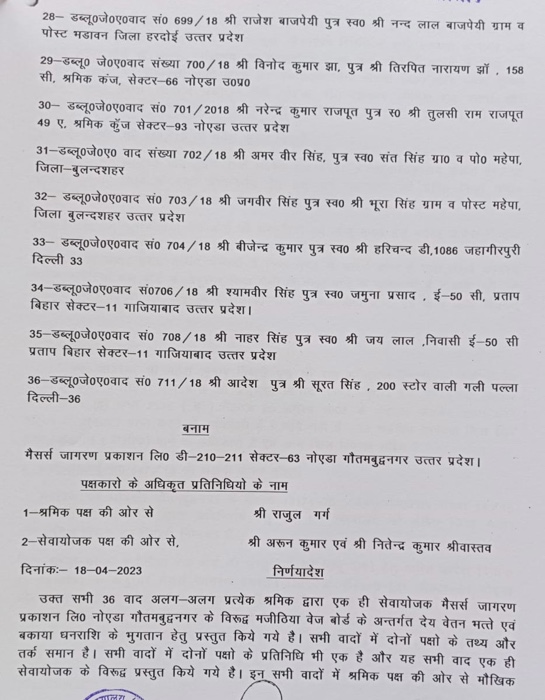 28– डब्लू०जे०ए०वाद सं० 699/18 श्री राजेश बाजपेयी पुत्र स्व० श्री नन्द लाल बाजपेयी ग्राम व
पोस्ट भडावन जिला हरदोई उत्तर प्रदेश
29–डब्लू० जे०ए०वाद संख्या 700/18 श्री विनोद कुमार झा, पुत्र श्री तिरपित नारायण झॉ , 158
सी, श्रमिक कंज, सेक्टर–66 नोएडा उ०प्र०
30– डब्लू०जे०ए०वाद सं० 701/2018 श्री नरेन्द्र कुमार राजपूत पुत्र स० श्री तुलसी राम राजपूत
49 ए, श्रमिक कुँज सेक्टर–93 नोएडा उत्तर प्रदेश
31–डब्लू०जे०ए० वाद संख्या 702/18 श्री अमर वीर सिंह, पुत्र स्व० संत सिंह ग्रा० व पो० महेपा,
जिला–बुलन्दशहर
32– डब्लू०जे०ए०वाद सं० 703/18 श्री जगवीर सिंह पुत्र स्व० श्री भूरा सिंह ग्राम व पोस्ट महेपा,
जिला बुलन्दशहर उत्तर प्रदेश
33– डब्लू०जे०ए०वाद सं० 704/18 श्री बीजेन्द्र कुमार पुत्र स्व० श्री हरिचन्द डी,1086 जहागीरपुरी
दिल्ली 33
34–डब्लू०जे०ए०वाद सं०706/18 श्री श्यामवीर सिंह पुत्र स्व० जमुना प्रसाद , ई–50 सी, प्रताप
बिहार सेक्टर–11 गाजियाबाद उत्तर प्रदेश।
35–डब्लू०जे०ए०वाद सं० 708/18 श्री नाहर सिंह पुत्र स्व० श्री जय लाल ,निवासी ई–50 सी
प्रताप बिहार सेक्टर–11 गाजियाबाद उत्तर प्रदेश
36–डब्लू०जे०ए०वाद सं० 711/18 श्री आदेश पुत्र श्री सूरत सिंह , 200 स्टोर वाली गली पल्ला
दिल्ली–36
बनाम
मैसर्स जागरण प्रकाशन लि० डी–210–211 सेक्टर–63 नोएडा गौतमबुद्वनगर उत्तर प्रदेश।
पक्षकारो के अधिकृत प्रतिनिधियो के नाम
1–श्रमिक पक्ष की ओर से श्री राजुल गर्ग
2–सेवायोजक पक्ष की ओर से, श्री अरून कुमार एवं श्री नितेन्द्र कुमार श्रीवास्तव
दिनांकः– 18–04–2023 निर्णयादेश
उक्त सभी 36 वाद अलग–अलग प्रत्येक श्रमिक द्वारा एक ही सेवायोजक मैसर्स जागरण
प्रकाशन लि० नोएडा गौतमबुद्वनगर के विरूद्व मजीठिया वेज बोर्ड के अन्तर्गत देय वेतन भत्ते एवं
बकाया धनराशि के भुगतान हेतु प्रस्तुत किये गये है। सभी वादों में दोनों पक्षो के तथ्य और
तर्क समान है। सभी वादों में दोनों पक्षों के प्रतिनिधि भी एक है और यह सभी वाद एक ही
सेवायोजक के विरूद्व प्रस्तुत किये गये है। इन सभी वादों में श्रमिक पक्ष की ओर से मौखिक